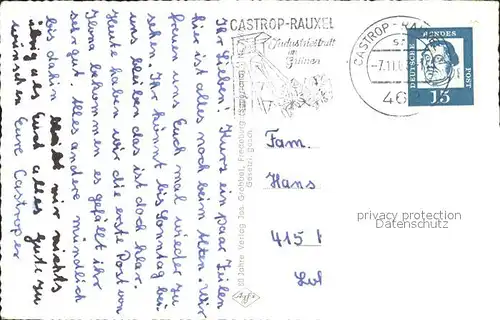 Ihr Lieben! Kurz ein paar Zeilen
hier ist alles noch beim Alten. Wir
freuen uns Euch mal wieder zu
sehen. Ihr könnt bis Sonntag bei
uns bleiben das ist doch klar.
Heute haben wir die erste Post von
Ilona bekommen es gefällt ihr
sehr gut. Alles andere mündlich
bis dahin
mir nichts
übrig als Euch alles Gute zu
wünschen
Eure Castroper
CASTROP-RAUXEL
Industriestadt
im
Grünen
CASTROP-RAUXEL
-7.11.6
46
DEUTSCHE BUNDESPOST
15
Verlag Jos. Grobbel, Fredeburg
Gesetzl. gesch.
Agfa
Fam.
Hans
415
privacy protection
Datenschutz